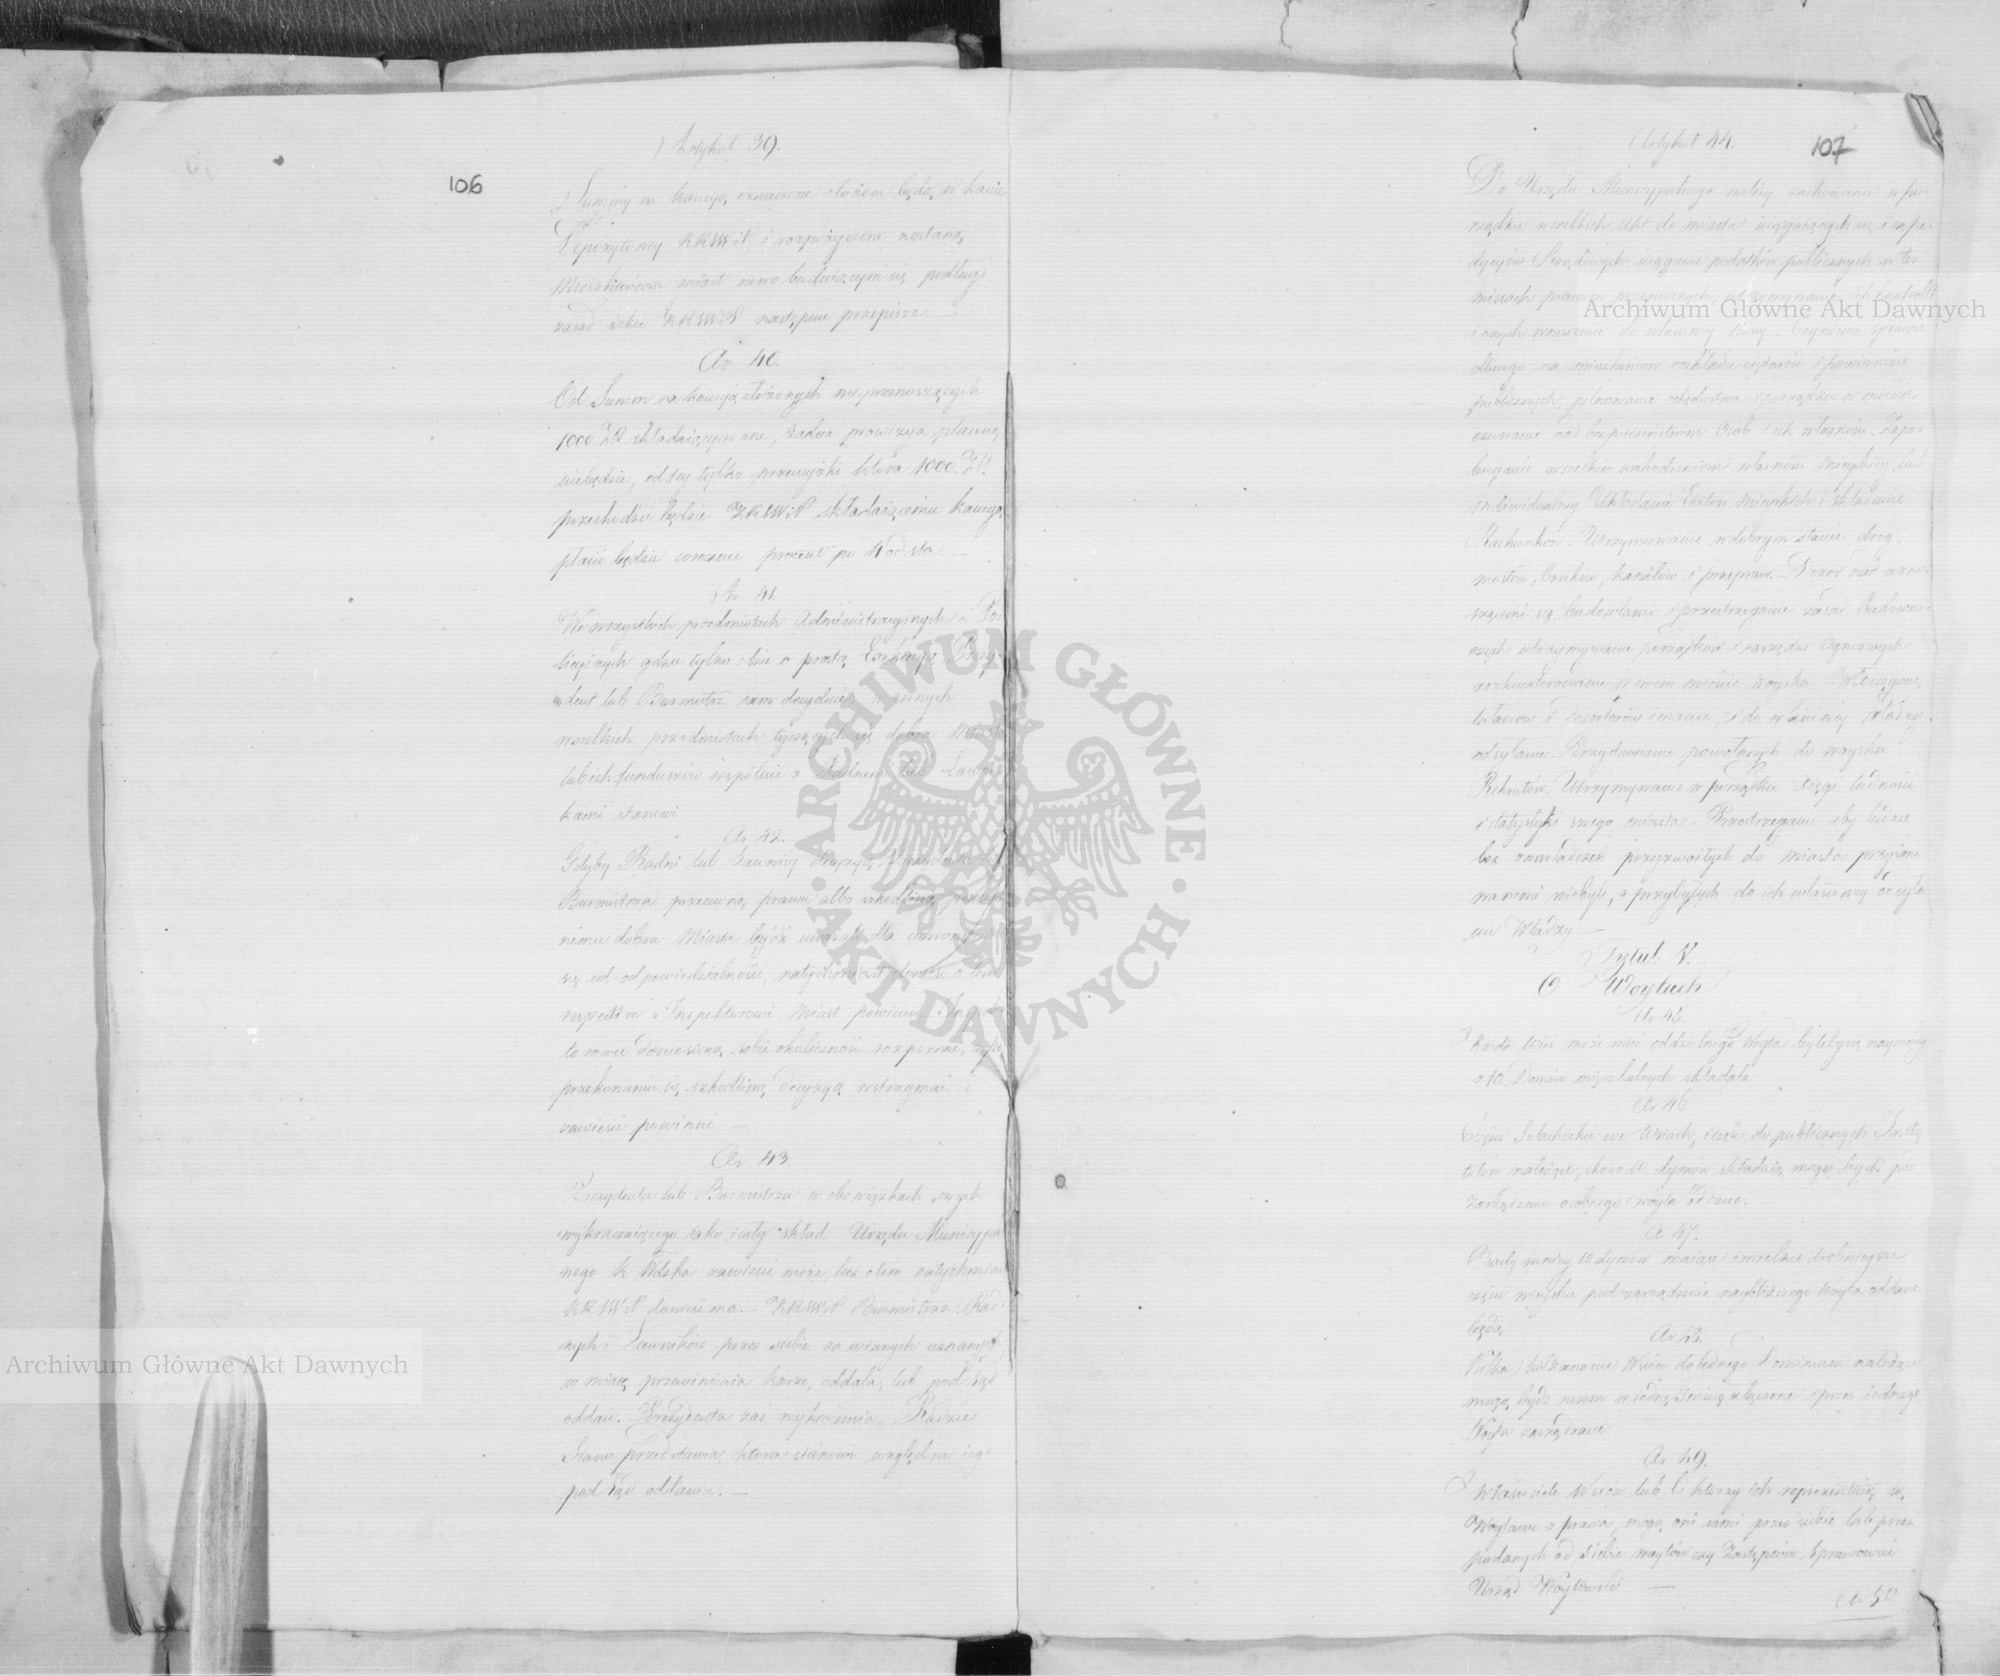 106
Artykuł 39.
Summy na kaucyę oznaczone złożone będą w kassie
Depozytowey KRSW i P. i rozpożyczone zostaną
Mieszkańcom miast nowo buduiącym się podług
zasad iakie KRSWiP następnie przepisze. —
Ar 40.
Od Summ na kaucyię złożonych nie przenoszących
1000 Zł. składaiącym one, żadna prowizya płacona
niebędzie, od tey tylko przewyżki która 1000. Zł.
przechodzić będzie KRSWiP składaiącemu kaucyą
płacić będzie corocznie procent po 4 od sta. —
Ar. 41.
We wszystkich przedmiotach Administracyinych i Po-
licyinych gdzie tylko idzie o prostą Exekucyę, Prezy-
dent lub Burmistrz sam decyduie, w innych
wszelkich przedmiotach tyczących się dobra Miasta
lub ich funduszów wspólnie z Radnemi lub Ławni-
kami stanowi
Ar. 42.
Gdyby Radni lub Ławnicy decyzyą Prezydenta lub
Burmistrza przeciwną prawu albo szkodliwą
dobru Miasta bydź uważali dla uchronienia
się od odpowiedzialności, natychmiast donieść o tem
respective Inspektorowi Miast powinni. Inspek-
torowie doniesioną sobie okoliczność rozpoznać,
przekonaniu się szkodliwą decyzyą wstrzymać i
zawiesić powinni —
Ar 43.
Prezydenta lub Burmistrza w obowiązkach swych
wykraczaiącego iako i cały skład Urzędu Municypal-
nego K Wdzka zawiesić może, lecz o tem natychmiast
KRSWiP donieść ma. — KRSWiP Burmistrza Rad-
nych i Ławników przez siebie za winnych uznanych
w miarę przewinienia karze, oddala, lub pod Sąd
oddaie. Prezydenta zaś wykroczenia Radzie
Stanu przedstawia, która stanowi względem iego
pod Sąd oddania. —
107
Artykuł 44.
Do Urzędu Municypalnego należy zachowanie w po-
rządku wszelkich Akt do miasta ściągaiących się i expe-
dycyów Urzędowych, ściąganie podatków publicznych w ter-
minach prawem przepisanych, utrzymywanie ich kontrolli
i onych wnoszenie do właściwey kassy. Czynienie sprawie-
dliwego na mieszkańców rozkładu ciężarów i powinności
publicznych, pilnowanie ochędostwa i porządku w mieście
czuwanie nad bezpieczeństwem Osób i ich własności. Zapo-
bieganie wszelkim uszkodzeniom własności mieyskiey lub
indywidualney Układanie Etatów mieyskich i składanie
Rachunków. Utrzymywanie w dobrym stanie dróg,
mostów, bruków, kanałów i przepraw. — Dozór nad wzno-
szącemi się budowlami, i przestrzeganie zasad budowni-
czych utrzymywanie porządków i narzędzi Ogniowych
rozkwaterowanie w swem mieście woyska Włóczęgów,
tułaczów i desertorów imanie, i do właściwey Władzy
odsyłanie. Przystawianie powołanych do woyska
Rekrutów. Utrzymywanie w porządku Xięgi ludności
i statystyki swego miasta. Przestrzeganie aby ludzie
bez zaświadczeń przyzwoitych do miasta przyimo-
wanemi niebyli, a przybyłych do ich właściwey odsyła-
nie Władzy —
Tytuł V.
O Woytach
Ar 45
Każda Wieś może mieć oddzielnego Woyta byleby się naymniey
z 10. Domów mięszkalnych składała
Ar 46
Części Szlacheckie we Wsiach, i części do publicznych Insty-
tutów należące, skoro 10. dymów składaią mogą bydź pod
Zarządzenie osobnego woyta oddane. —
Ar 47.
Osady mniey 10 dymów maiące i wszelkie drobnieysze
części wieyskie pod zarządzenie naybliższego Woyta oddane
będą
Ar 48.
Kilka i kilkanaście Wsiów do iednego Dominium należące
mogą bydz razem w iedną Gminę złączone i przez iednego
Woyta zarządzane.
Ar 49.
Właściciele Wsiów lub Ci którzy ich reprezentuią są
Woytami z prawa, mogą oni sami przez siebie lub przez
podanych od siebie woytów czy Zastępców sprawować
Urząd Woytowski —
Ar 50
Archiwum Główne Akt Dawnych
Archiwum Główne Akt Dawnych
ARCHIWUM GŁÓWNE AKT DAWNYCH